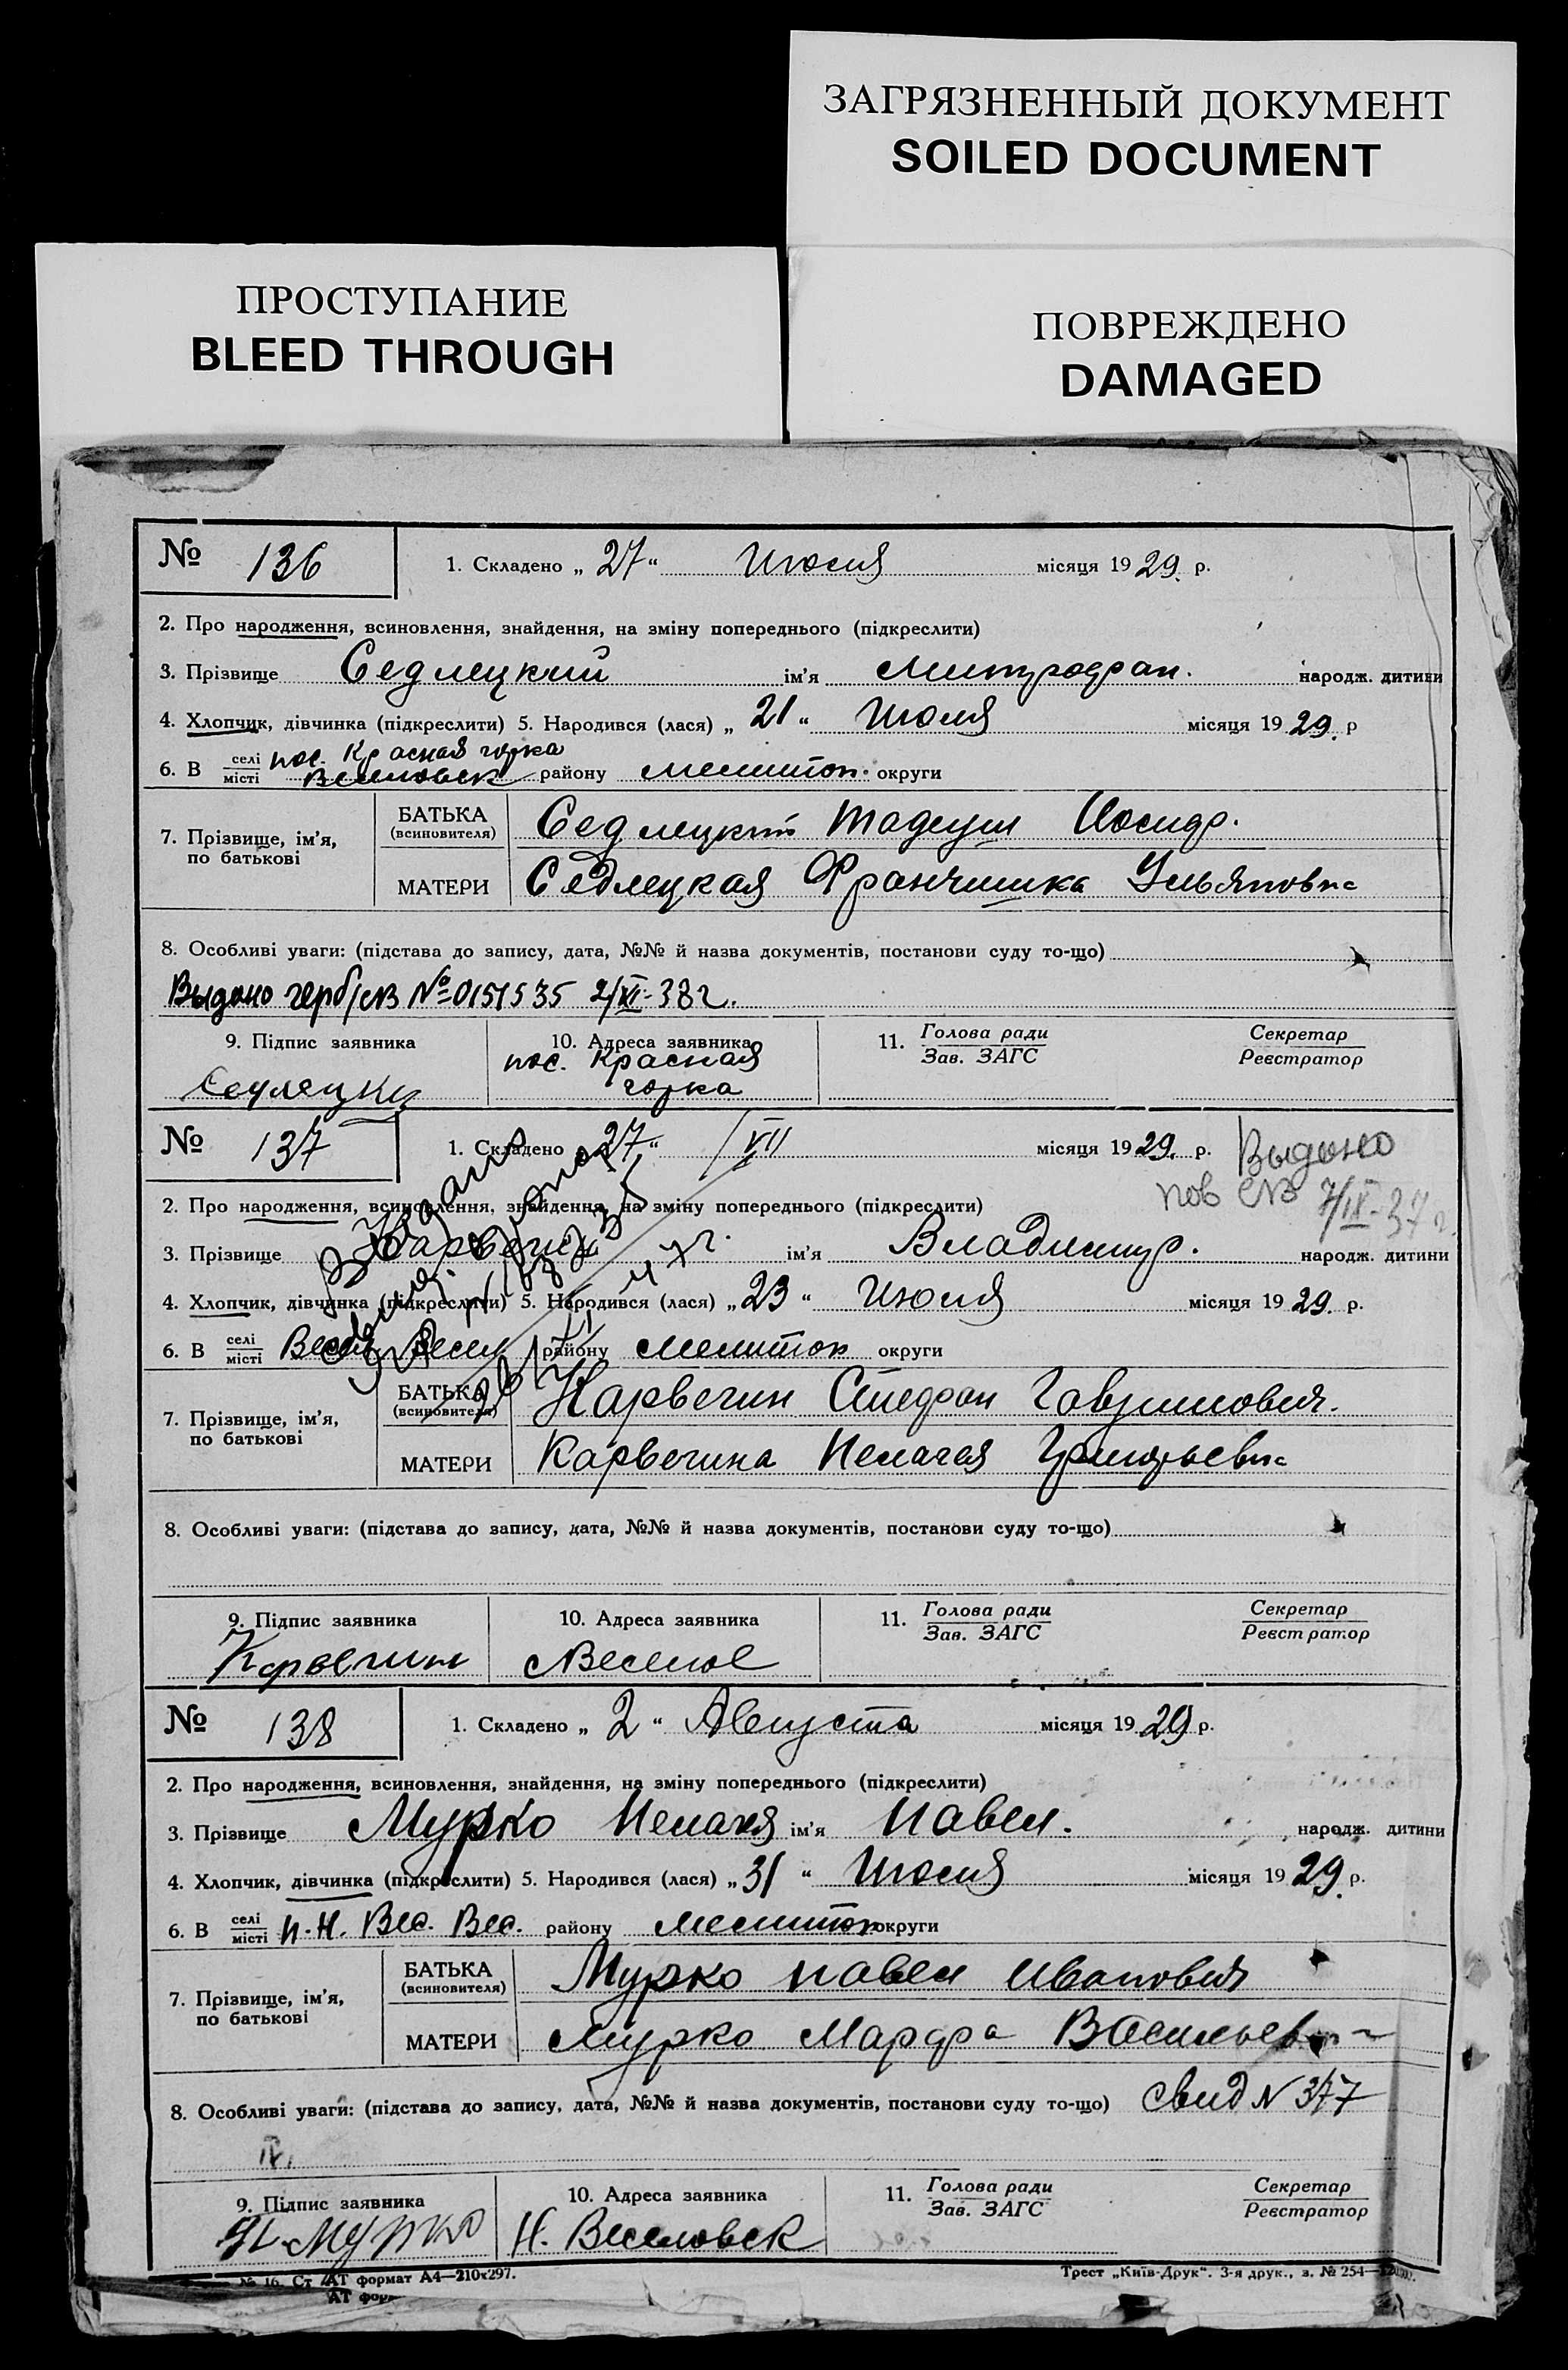 ЗАГРЯЗНЕННЫЙ ДОКУМЕНТ
SOILED DOCUMENT
ПРОСТУПАНИЕ
BLEED THROUGH
ПОВРЕЖДЕНО
DAMAGED
№ 136 1. Складено „ 27 “ Июля місяця 19 29. р.
2. Про народження, всиновлення, знайдення, на зміну попереднього (підкреслити)
3. Прізвище Седлецкий ім'я Митрофан. народж. дитини
4. Хлопчик, дівчинка (підкреслити) 5. Народився (лася) „ 21 “ Июля місяця 19 29. р
пос. Красная горка
6. В селі місті Веселовск району Мелитоп. округи
7. Прізвище, ім'я, по батькові
БАТЬКА (всиновителя) Седлецкий Тадеуш Иосиф.
МАТЕРИ Седлецкая Франчишка Ульяновна
8. Особливі уваги: (підстава до запису, дата, №№ й назва документів, постанови суду то-що)
Выдано герб/св №0151535 2/XI-38г.
9. Підпис заявника 10. Адреса заявника 11. Голова ради Зав. ЗАГС Секретар Реєстратор
Седлецки пос. Красная горка
№ 137 1. Складено „ 27 “ VII місяця 19 29. р. Выдано
пов св 7/IX-37г.
2. Про народження, всиновлення, знайдення, на зміну попереднього (підкреслити)
3. Прізвище Карвегин ім'я Владимир. народж. дитини
4. Хлопчик, дівчинка (підкреслити) 5. Народився (лася) „ 23 “ Июля місяця 19 29. р.
6. В селі місті Весел. Весел району Мелитоп округи
7. Прізвище, ім'я, по батькові
БАТЬКА (всиновителя) Карвегин Стефан Гаврилович.
МАТЕРИ Карвегина Пелагея Григорьевна
8. Особливі уваги: (підстава до запису, дата, №№ й назва документів, постанови суду то-що)
9. Підпис заявника 10. Адреса заявника 11. Голова ради Зав. ЗАГС Секретар Реєстратор
Карвегин Веселое
№ 138 1. Складено „ 2 “ Августа місяця 19 29 р.
2. Про народження, всиновлення, знайдення, на зміну попереднього (підкреслити)
3. Прізвище Мурко Пелагея ім'я Павел. народж. дитини
4. Хлопчик, дівчинка (підкреслити) 5. Народився (лася) „ 31 “ Июля місяця 19 29. р.
6. В селі місті Н. Вес. Вес. району Мелитоп округи
7. Прізвище, ім'я, по батькові
БАТЬКА (всиновителя) Мурко Павел Иванович
МАТЕРИ Мурко Марфа Васильевна
8. Особливі уваги: (підстава до запису, дата, №№ й назва документів, постанови суду то-що) Свид N 377
IV.
9. Підпис заявника 10. Адреса заявника 11. Голова ради Зав. ЗАГС Секретар Реєстратор
П. Мурко Н. Веселовск
№ 16. Ст АТ формат А4—210х297. Трест „Київ-Друк“. 3-я друк., з. № 254—